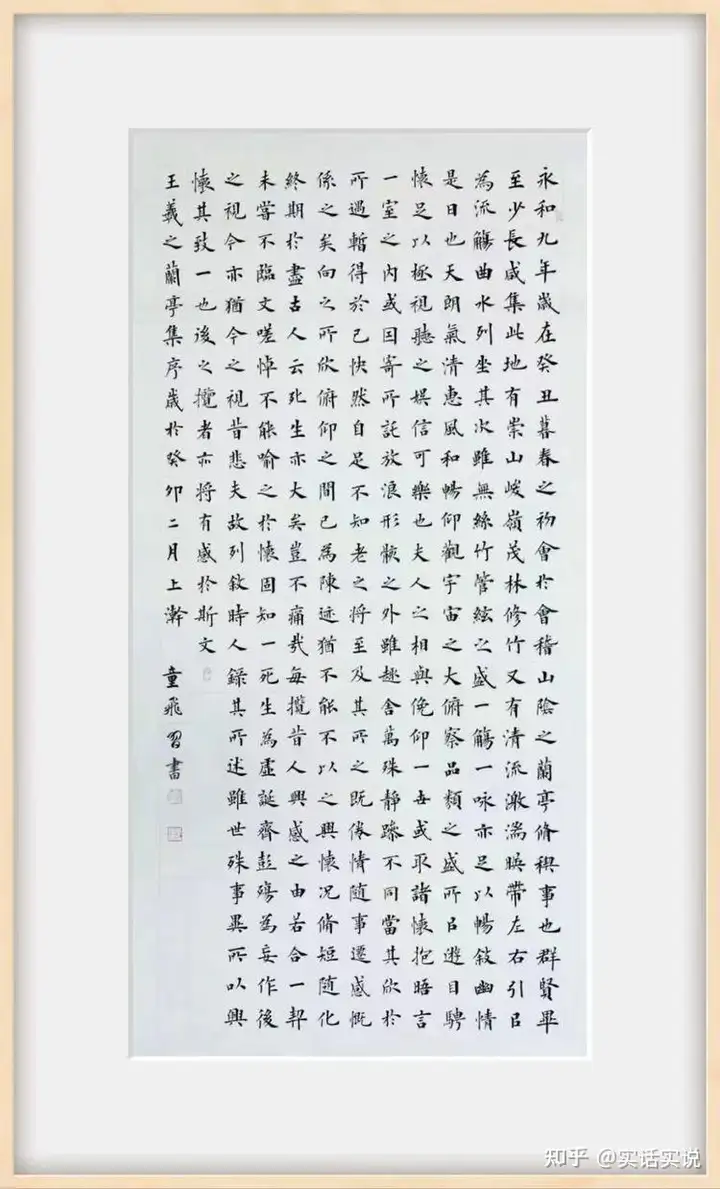 永和九年歲在癸丑暮春之初會於會稽山陰之蘭亭脩稧事也群賢畢
至少長咸集此地有崇山峻嶺茂林修竹又有清流激湍暎帶左右引㠯
為流觴曲水列坐其次雖無絲竹管絃之盛一觴一咏亦足以暢敘幽情
是日也天朗氣清惠風和暢仰觀宇宙之大俯察品類之盛所㠯遊目騁
懷足以極視聽之娛信可樂也夫人之相與俛仰一世或取諸懷抱晤言
一室之內或因寄所託放浪形骸之外雖趣舍萬殊靜躁不同當其欣於
所遇暫得於己快然自足不知老之將至及其所之既倦情隨事遷感慨
係之矣向之所欣俯仰之間已為陳迹猶不能不以之興懷況脩短隨化
終期於盡古人云死生亦大矣豈不痛哉每攬昔人興感之由若合一契
未嘗不臨文嗟悼不能喻之於懷固知一死生為虛誕齊彭殤為妄作後
之視今亦猶今之視昔悲夫故列敘時人錄其所述雖世殊事異所以興
懷其致一也後之攬者亦將有感於斯文
王羲之蘭亭集序歲於癸卯二月上澣 童飛習書
知乎 @实话实说